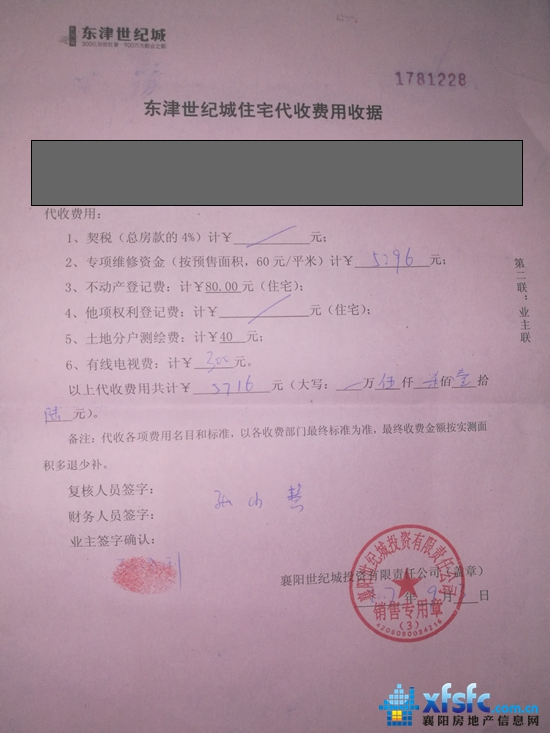 东津世纪城
1781228
东津世纪城住宅代收费用收据
代收费用：
1、契税（总房款的4%）计￥ 元；
2、专项维修资金（按预售面积，60元/平米）计￥ 5296 元；
3、不动产登记费：计￥80.00元（住宅）；
4、他项权利登记费：计￥ 元（住宅）；
5、土地分户测绘费：计￥40 元；
6、有线电视费：计￥ 300 元。
以上代收费用共计￥ 5716 元（大写： 万 伍 仟 佰 壹 拾
陆 元）。
备注：代收各项费用名目和标准，以各收费部门最终标准为准，最终收费金额按实测面
积多退少补。
复核人员签字：
财务人员签字：
业主签字确认：
第二联：业主联
襄阳世纪城投资有限责任公司（盖章）
年 9 月 日
襄阳世纪城投资有限责任公司
销售专用章
（3）
xfsfc.com.cn
襄阳房地产信息网